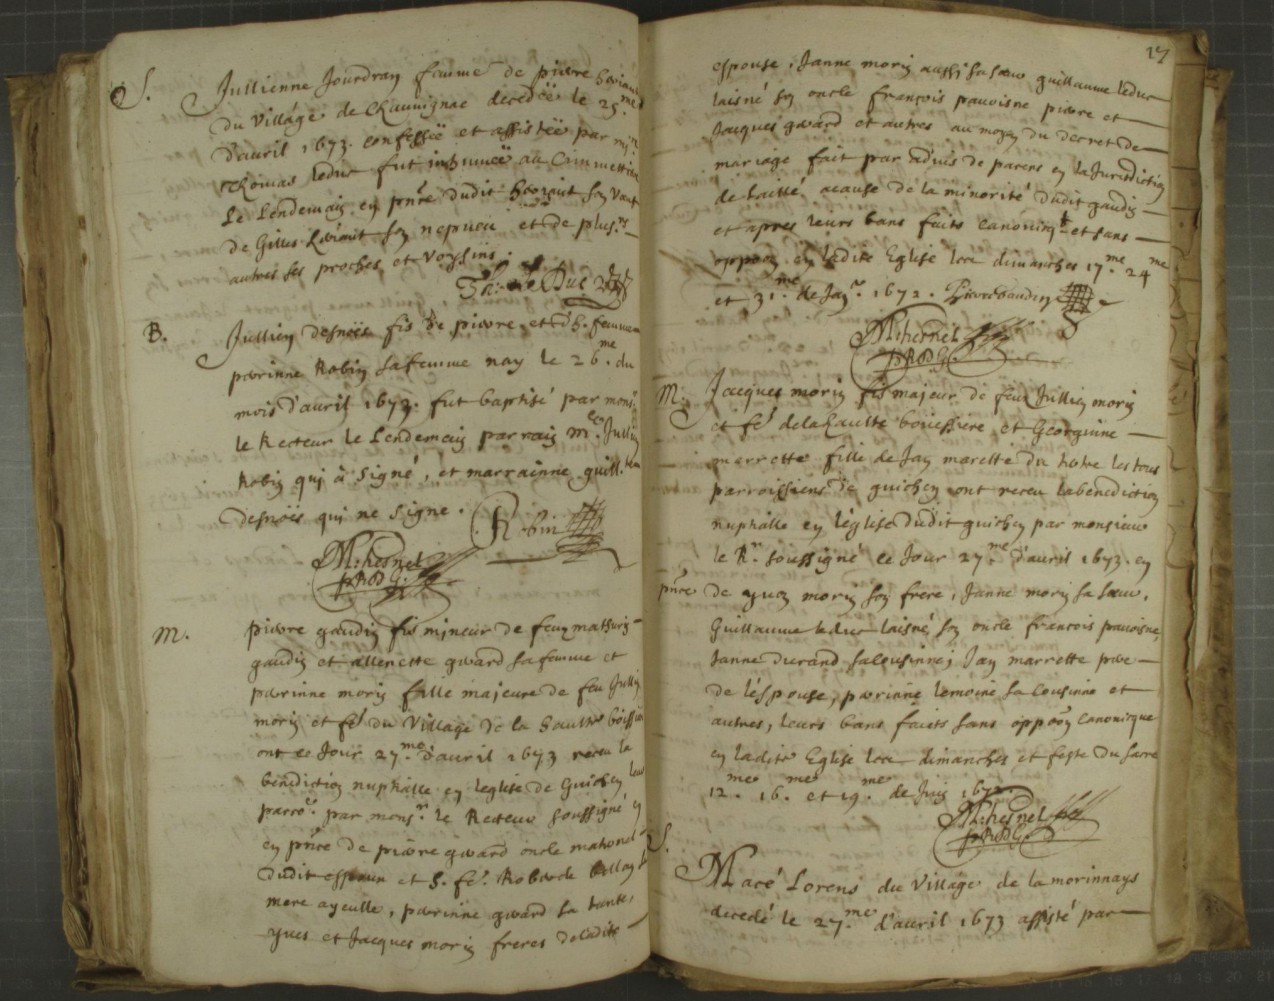 S.
Jullienne Jourdran femme de pierre
du Village de Chauvignac decedëe le 25me
d'avril 1673. confessëe et assistëe par
Thomas leduc fut inhumëe au
Le Lendemain en pnce dudit
de Gilles son nepveu et de plusrs
autres ses proches et voysins.
Th: le Duc
B.
Jullien desnoës fis de pierre et d'h. femme
perrinne Robin sa femme nay le 26me du
mois d'avril 1673. fut baptisé par monsr
le Recteur le Lendemain parrain Me Jullien
Robin qui à Signé, et marrainne guill.
desnoës qui ne signe. Robin
M: hesnel
pr Rr D G.
M.
pierre gaudin fis mineur de feux mathurin
gaudin et allenette gward sa femme et
perrinne morin fille majeure de feu Jullien
morin et fe du Village de la haulte boissiere
ont ce Jour 27me d'avril 1673 receu la
bénédiction nuptialle en l'eglise de Guichen leur
parrce par monsr le Recteur soussigné en
en pnce de pierre gward oncle maternel
dudit espoux et h. fe. Roberde
mere ayeulle, perrinne gward sa tante,
yves et Jacques morin freres deladite
17
espouse, Janne morin aussi sa soeur guillaume leduc
laisné son oncle françois pavoisne pierre et
Jacques gward et autres au moyen du decret de
mariage fait par advis de parens en la Jurisdiction
de Laillé acause de la minorité dudit gaudin
et apres leurs bans faits canonicqt et sans
oppoon en ladite Eglise les dimanches 17me 24me
et 31me de Janr 1672.
M: hesnel
pr Rr D G.
M.
Jacques morin fis majeur de feu Jullien morin
et fe de la haulte bouessiere et Georginne
marrette fille de Jan marette du tertre les tous
parroissiens de guichen ont receu la benediction
nuptialle en l'église dudit guichen par monsieur
le Rr. soussigné ce Jour 27me d'avril 1673. en
pnce de yves morin son frere, Janne morin sa soeur,
Guillaume leduc laisné son oncle francois pavoisne,
Janne durand sa cousinne, Jan marrette pere
de l'éspouse, perrinne lemoine sa Cousinne et
autres, leurs bans faits sans oppoon canonicque
en ladite Eglise les dimanches et feste du sacre
12me 16me et 19me de Juin 1672.
M: hesnel
pr Rr D G.
S.
Macé Lorens du Village de la morinnays
decedé le 27me d'avril 1673 assisté par